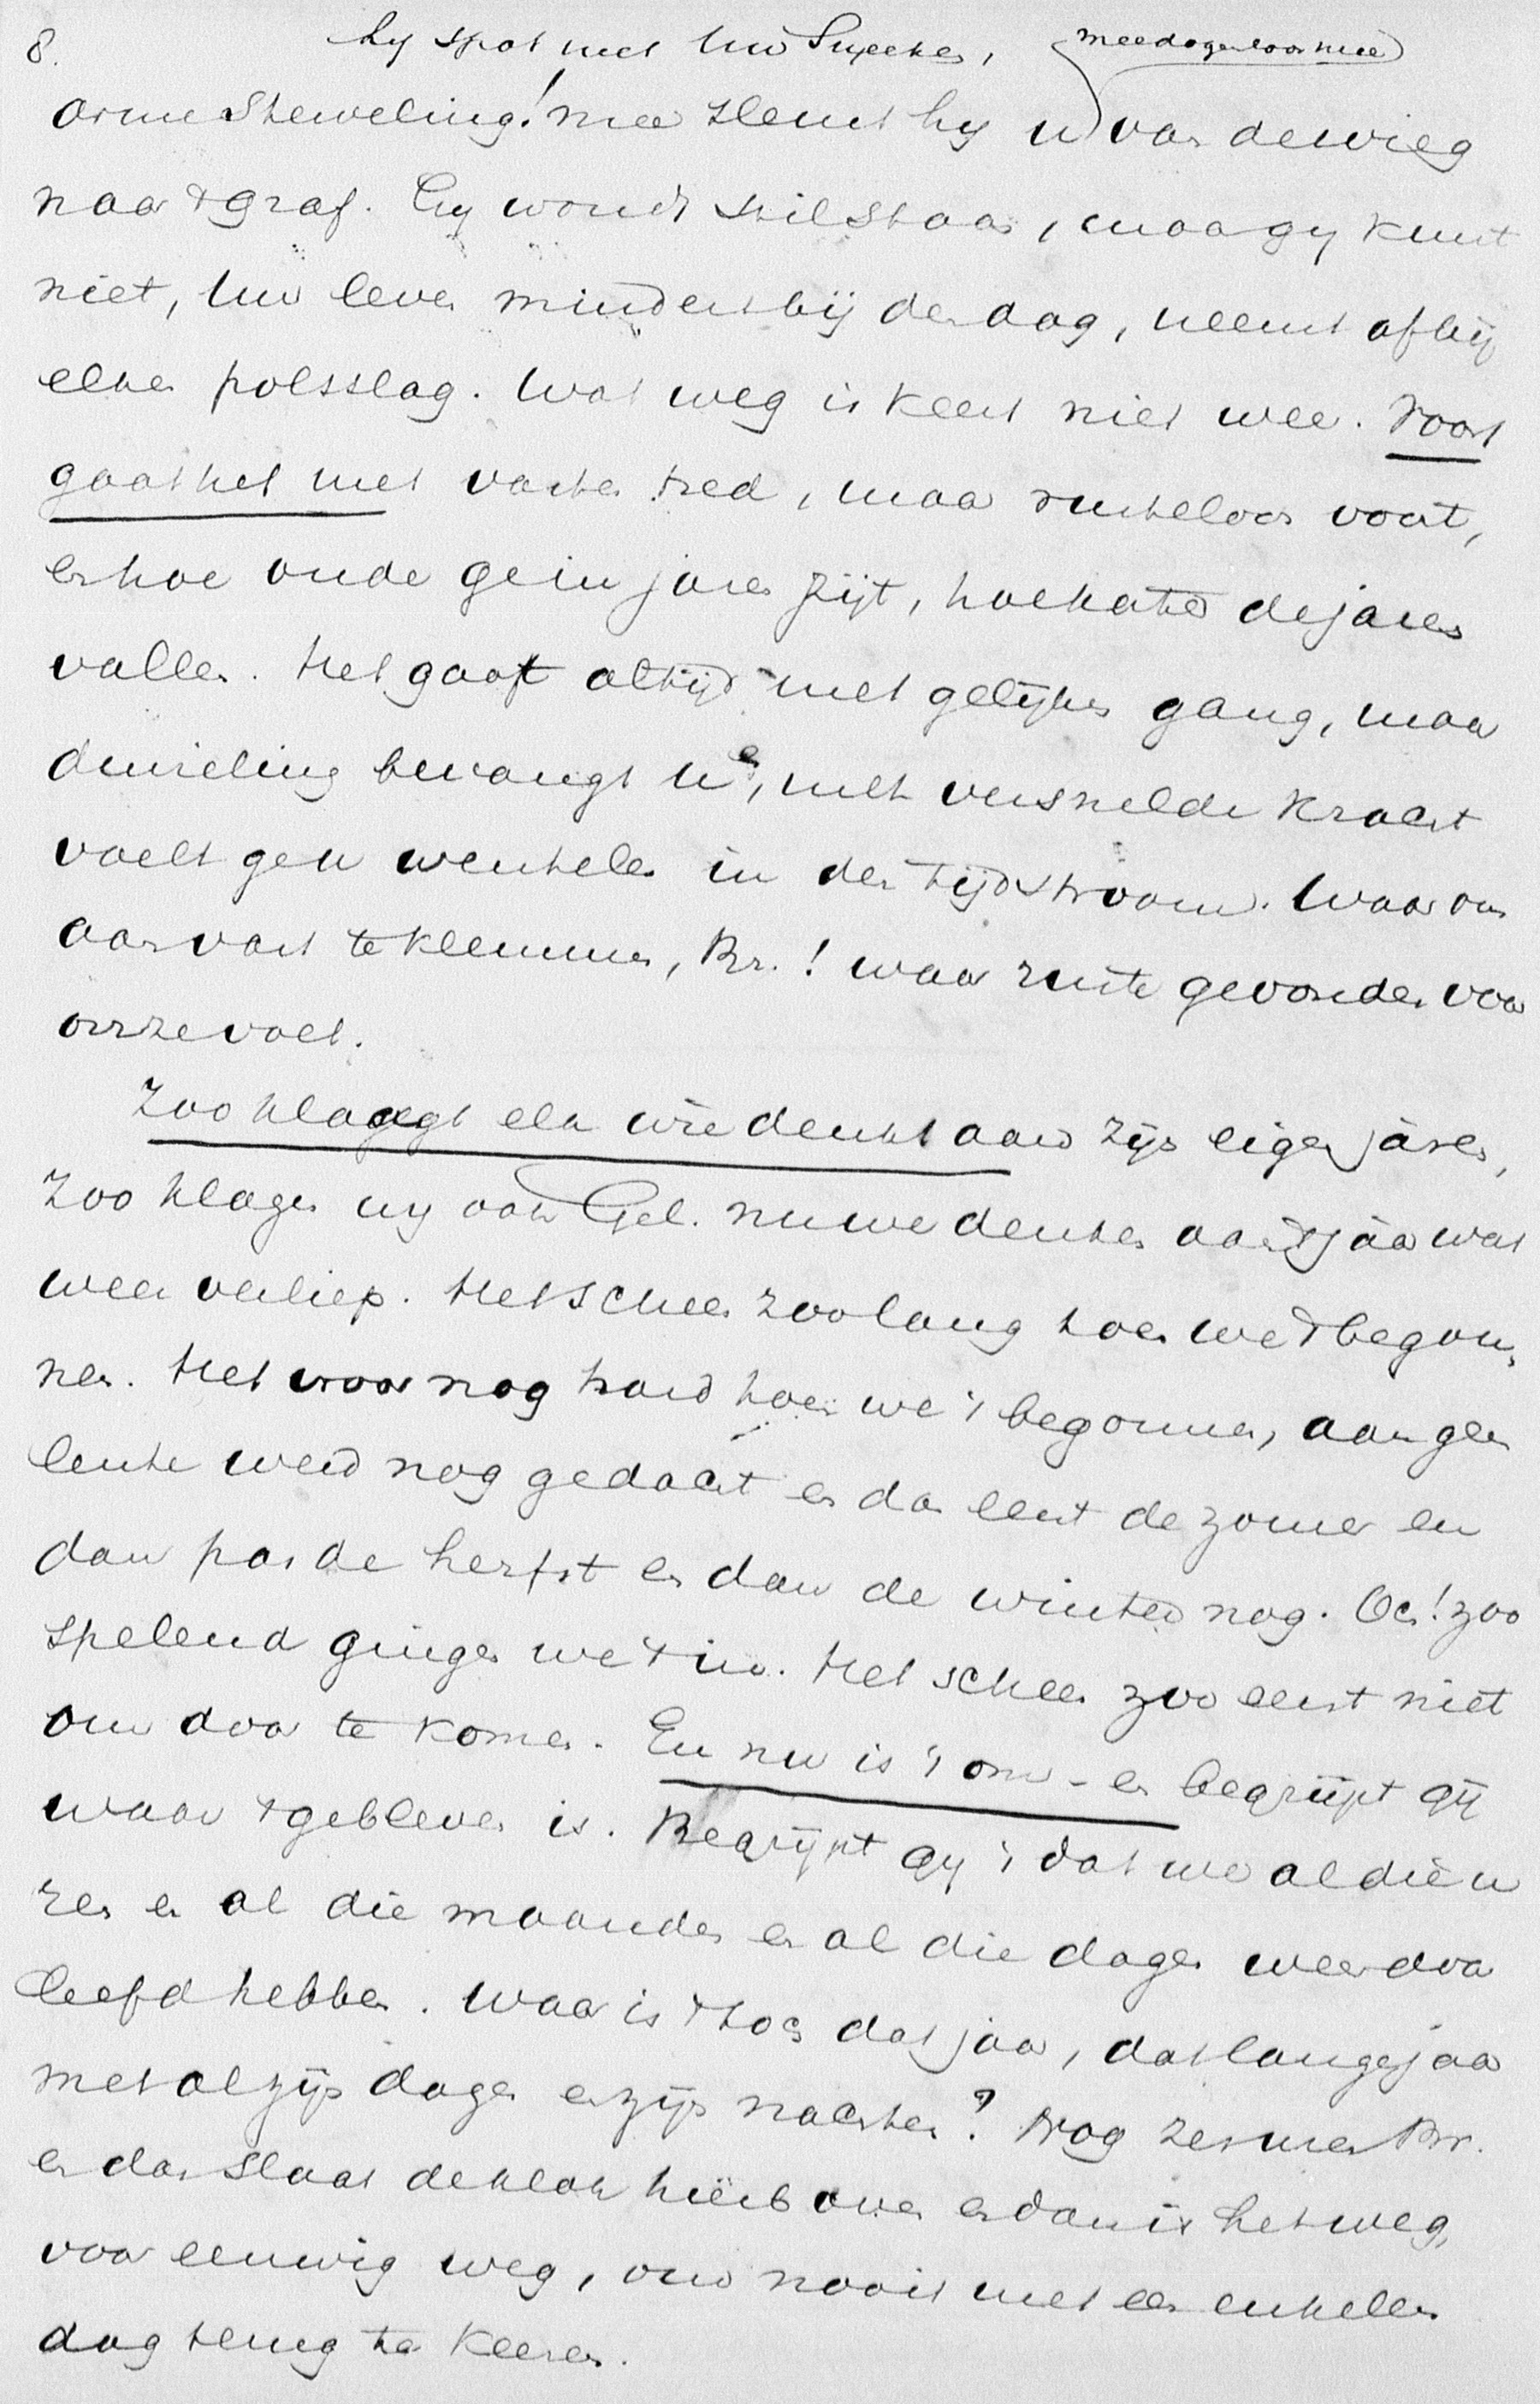 8.
hij spot met Uw Smeeken, meedogenloos mee
arme Sterveling! mee sleurt hij u van de wieg
naar 't graf. Gij woudt stilstaan, maar gij kunt
niet, Uw leven mindert bij den dag, neemt af bij
elken polsslag. Wat weg is keert niet weer. Voort
gaat het met vasten tred, maar rusteloos voort,
en hoe ouder ge in jaren zijt, hoe harder de jaren
vallen. Het gaat altijd met gelijken gang, maar
duizeling bevangt U en, met versnelde kracht
voelt ge u wentelen in den tijdstroom. Waar ons
aan vast te klemmen, Br.! waar ruste gevonden voor
onze voet.
Zoo klaagt elk wie denkt aan zijn eigen jaren,
zoo klagen wij ook Gel. nu we denken aan 't jaar wat
weer verliep. Het scheen zoo lang toen we 't begon-
nen. Het vroor nog hard toen we 't begonnen, aan geen
lente werd nog gedacht en dan eerst de zomer en
dan pas de herfst en dan de winter nog. Och! zoo
spelend gingen we 't in. Het scheen zoo eerst niet
om door te komen. En nu is 't om - en begrijpt gij
waar 't gebleven is. Begrijpt gij 't dat we al die u
ren en al die maanden en al die dagen weer door
leefd hebben. Waar is 't toch dat jaar, dat lange jaar
met al zijn dagen en zijn nachten? Nog zes uren Br.
en dan slaat de klok hierboven en dan is het weg,
voor eeuwig weg, om nooit met een enkelen
dag terug te keeren.